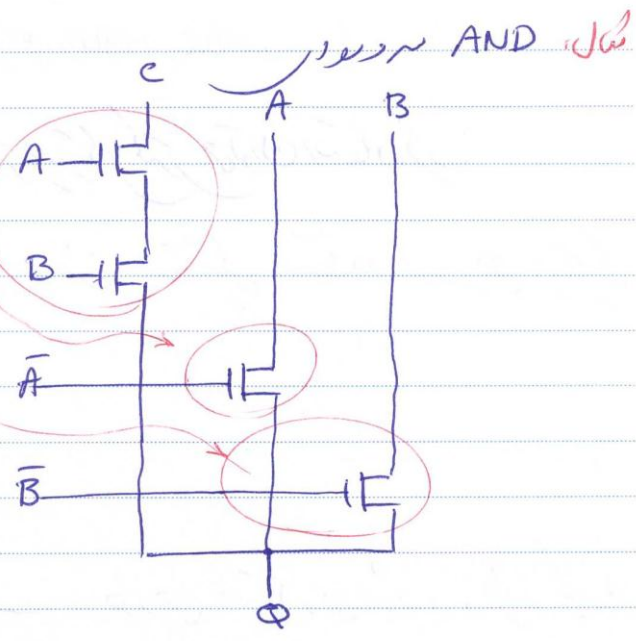 مثال: AND سه ورودی
C A B
A
B
A̅
B̅
Q